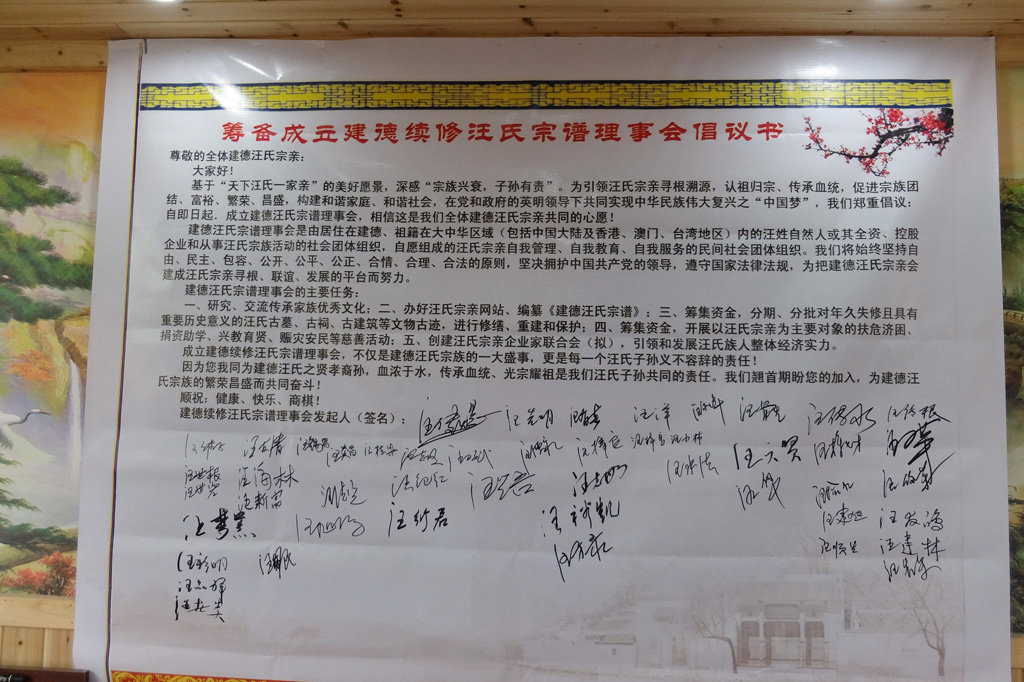 筹备成立建德续修汪氏宗谱理事会倡议书
尊敬的全体建德汪氏宗亲：
大家好！
基于“天下汪氏一家亲”的美好愿景，深感“宗族兴衰，子孙有责”。为引领汪氏宗亲寻根溯源，认祖归宗、传承血统，促进宗族团
结、富裕、繁荣、昌盛，构建和谐家庭、和谐社会，在党和政府的英明领导下共同实现中华民族伟大复兴之“中国梦”，我们郑重倡议：
自即日起．成立建德汪氏宗谱理事会，相信这是我们全体建德汪氏宗亲共同的心愿！
建德汪氏宗谱理事会是由居住在建德、祖籍在大中华区域（包括中国大陆及香港、澳门、台湾地区）内的汪姓自然人或其全资、控股
企业和从事汪氏宗族活动的社会团体组织，自愿组成的汪氏宗亲自我管理、自我教育、自我服务的民间社会团体组织。我们将始终坚持自
由、民主、包容、公开、公平、公正、合情、合理、合法的原则，坚决拥护中国共产党的领导，遵守国家法律法规，为把建德汪氏宗亲会
建成汪氏宗亲寻根、联谊、发展的平台而努力。
建德汪氏宗谱理事会的主要任务：
一、研究、交流传承家族优秀文化；二、办好汪氏宗亲网站、编纂《建德汪氏宗谱》；三、筹集资金，分期、分批对年久失修且具有
重要历史意义的汪氏古墓、古祠、古建筑等文物古迹，进行修缮、重建和保护；四、筹集资金，开展以汪氏宗亲为主要对象的扶危济困、
捐资助学、兴教育贤、赈灾安民等慈善活动；五、创建汪氏宗亲企业家联合会（拟），引领和发展汪氏族人整体经济实力。
成立建德续修汪氏宗谱理事会，不仅是建德汪氏宗族的一大盛事，更是每一个汪氏子孙义不容辞的责任！
因为您我同为建德汪氏之贤孝裔孙，血浓于水，传承血统、光宗耀祖是我们汪氏子孙共同的责任。我们翘首期盼您的加入，为建德汪
氏宗族的繁荣昌盛而共同奋斗！
顺祝：健康、快乐、商棋！
建德续修汪氏宗谱理事会发起人（签名）：
汪光明 汪洋
汪海林
汪新富
汪竹君
汪发鸿
汪彩明 汪建林
汪志辉